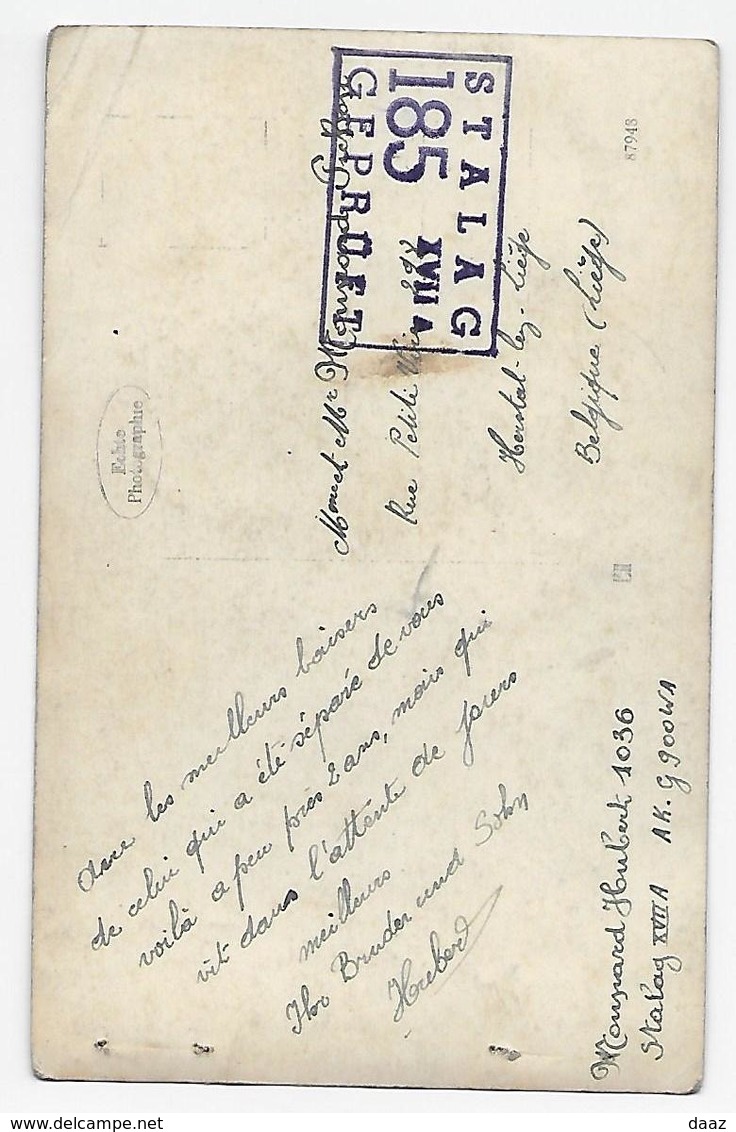 STALAG
XVII A
185
GEPRÜFT
87948
Echte
Photographie
Mme et Mr Mounard
Rue Petite
Herstal-lez-Liége
Belgique (Liége)
avec les meilleurs baisers
de celui qui a été séparé de vous
voilà a peu près 2 ans, mais qui
vit dans l'attente de jours
meilleurs.
Ihr Bruder und Sohn
Hubert
Mounard Hubert 1036
Stalag XVII A AK. G 900WA
daaz